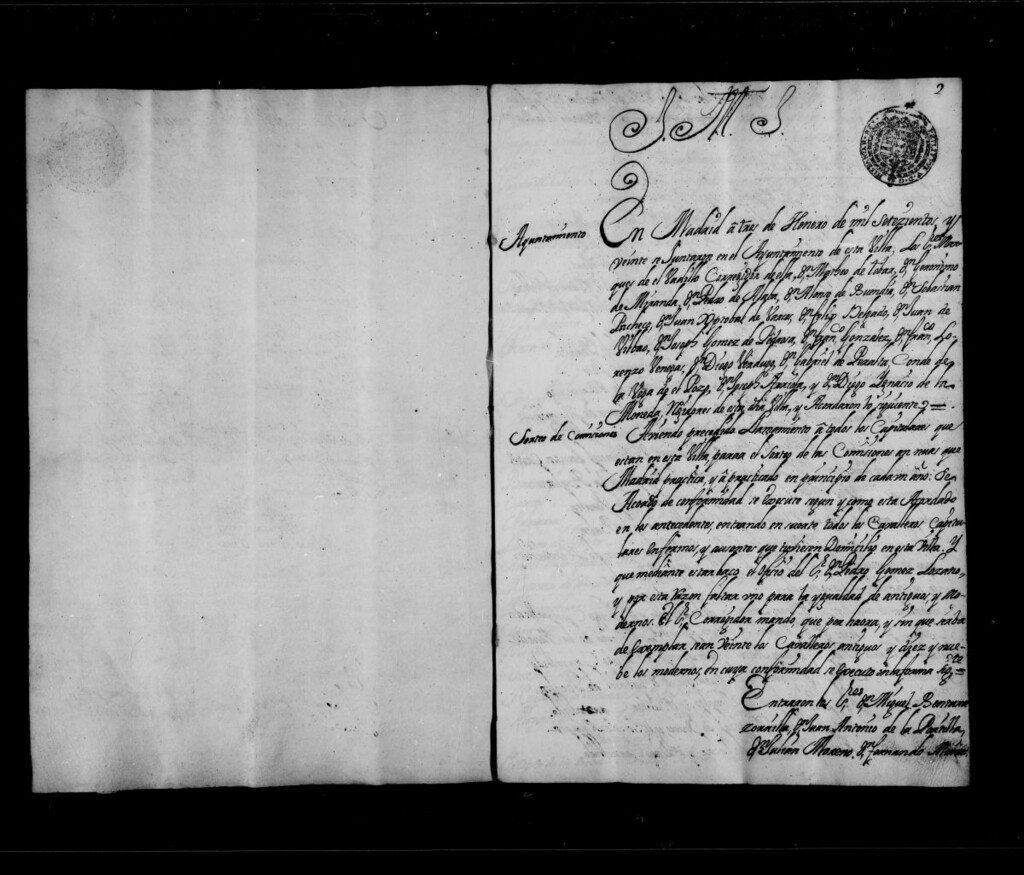 2
J. M. J.
Ayuntamiento
En Madrid â tres de Henero de mil Setezientos, y
veinte se Juntaron en el Ayuntamiento de esta Villa, Los S.res Mar-
ques de el Vadillo Correxidor de ella, D.n Matheo de tobar, D.n Geronimo
de Miranda, D.n Pedro de Alava, D.n Alonso de Buendia, D.n Sebastian
Pacheco, D.n Juan Xptobal de Varcos, D.n felix Delgado, D.n Juan de
Vilbao, D.n Joseph Gomez de D.n fran.co Gonzalez, D.n fran.co Lo-
renzo Venegas, D.n Diego Verdugo, D.n Gabriel de Peralta, Conde de
la Vega de el Pozo, D.n Joseph y D.n Diego Ignacio de la
Moneda, Rexidores de esta dha Villa, y Acordaron lo siguiente =
Sorteo de Comisiones
Aviendo precedido Llamamiento â todos los Capitulares que
estan en esta Villa, para el Sorteo de las Comisiones annuas que
Madrid practica, y â practicado en principio de cada un año: Se
Acordo de conformidad se Execute segun y como esta Acordado
en los antecedentes, entrando en suerte todos los Cavalleros Capitu-
lares Enfermos, y ausentes que tuviesen Domicilio en esta Villa. Y
que mediante estar baco el oficio del S.r D.n Pedro Gomez Lozano,
y por esta razon faltar uno para la ygualdad de antiguos, y Mo-
dernos. El S.r Correxidor mando, que por haora, y sin que sirba
de Exemplar sean Veinte los Cavalleros antiguos y diez y nue-
be los modernos, en cuya conformidad se Executo en la forma sig.te =
Entraron los S.res D.n Miguel
D.n Juan Antonio de la Portilla,
D.n Julian Moreno, D.n fernando